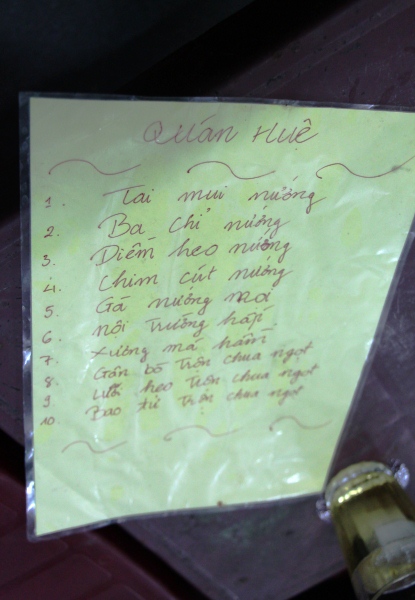 Quán Huệ
1. Tai mũi nướng
2. Ba chỉ nướng
3. Diềm heo nướng
4. Chim cút nướng
5. Gà nướng
6. Trường hấp
7. Xương má hầm
8. Gân bò trộn chua ngọt
9. Lưỡi heo trộn chua ngọt
10. Bao tử trộn chua ngọt